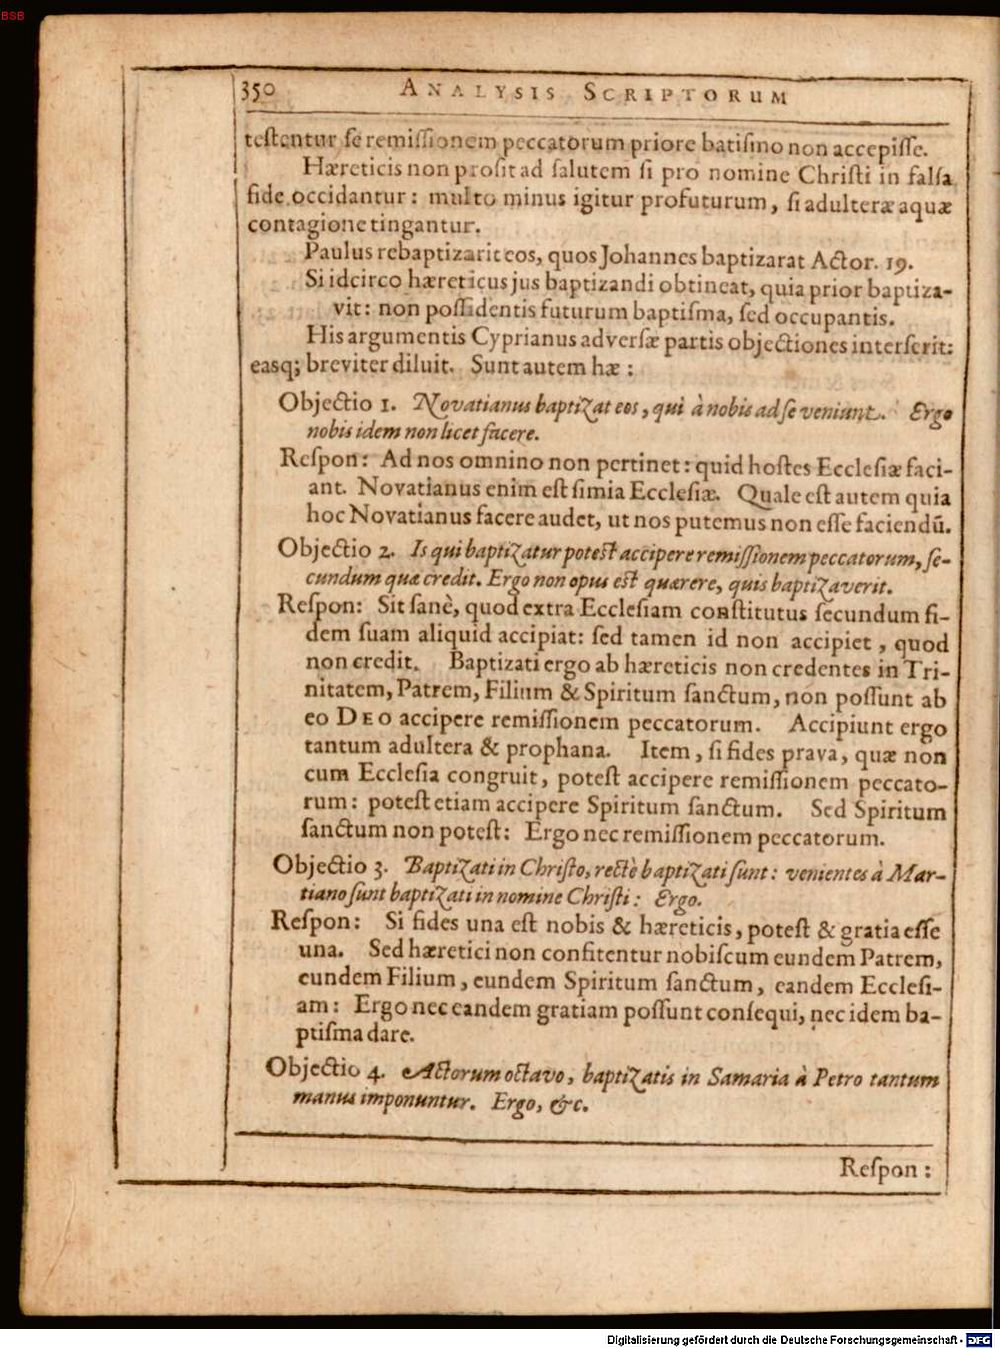 BSB
350 ANALYSIS SCRIPTORUM
teſtentur ſe remiſſionem peccatorum priore batiſmo non accepiſſe.
Hæreticis non proſit ad ſalutem ſi pro nomine Chriſti in falſa
fide occidantur: multo minus igitur profuturum, ſi adulteræ aquæ
contagione tingantur.
Paulus rebaptizarit eos, quos Johannes baptizarat Actor. 19.
Si idcirco hæreticus jus baptizandi obtineat, quia prior baptiza-
vit: non poſſidentis futurum baptiſma, ſed occupantis.
His argumentis Cyprianus adverſæ partis objectiones interſerit:
easq; breviter diluit. Sunt autem hæ:
Objectio 1. Novatianus baptizat eos, qui à nobis ad ſe veniunt. Ergo
nobis idem non licet facere.
Reſpon: Ad nos omnino non pertinet: quid hoſtes Eccleſiæ faci-
ant. Novatianus enim eſt ſimia Eccleſiæ. Quale eſt autem quia
hoc Novatianus facere audet, ut nos putemus non eſſe faciendū.
Objectio 2. Is qui baptizatur poteſt accipere remiſſionem peccatorum, ſe-
cundum quæ credit. Ergo non opus eſt quærere, quis baptizaverit.
Reſpon: Sit ſanè, quod extra Eccleſiam conſtitutus ſecundum fi-
dem ſuam aliquid accipiat: ſed tamen id non accipiet, quod
non credit. Baptizati ergo ab hæreticis non credentes in Tri-
nitatem, Patrem, Filium & Spiritum ſanctum, non poſſunt ab
eo DEO accipere remiſſionem peccatorum. Accipiunt ergo
tantum adultera & prophana. Item, ſi fides prava, quæ non
cum Eccleſia congruit, poteſt accipere remiſſionem peccato-
rum: poteſt etiam accipere Spiritum ſanctum. Sed Spiritum
ſanctum non poteſt: Ergo nec remiſſionem peccatorum.
Objectio 3. Baptizati in Chriſto, rectè baptizati ſunt: venientes à Mar-
tiano ſunt baptizati in nomine Chriſti: Ergo.
Reſpon: Si fides una eſt nobis & hæreticis, poteſt & gratia eſſe
una. Sed hæretici non confitentur nobiſcum eundem Patrem,
eundem Filium, eundem Spiritum ſanctum, eandem Eccleſi-
am: Ergo nec eandem gratiam poſſunt conſequi, nec idem ba-
ptiſma dare.
Objectio 4. Actorum octavo, baptizatis in Samaria à Petro tantum
manus imponuntur. Ergo, &c.
Reſpon:
Digitalisierung gefördert durch die Deutsche Forschungsgemeinschaft - DFG